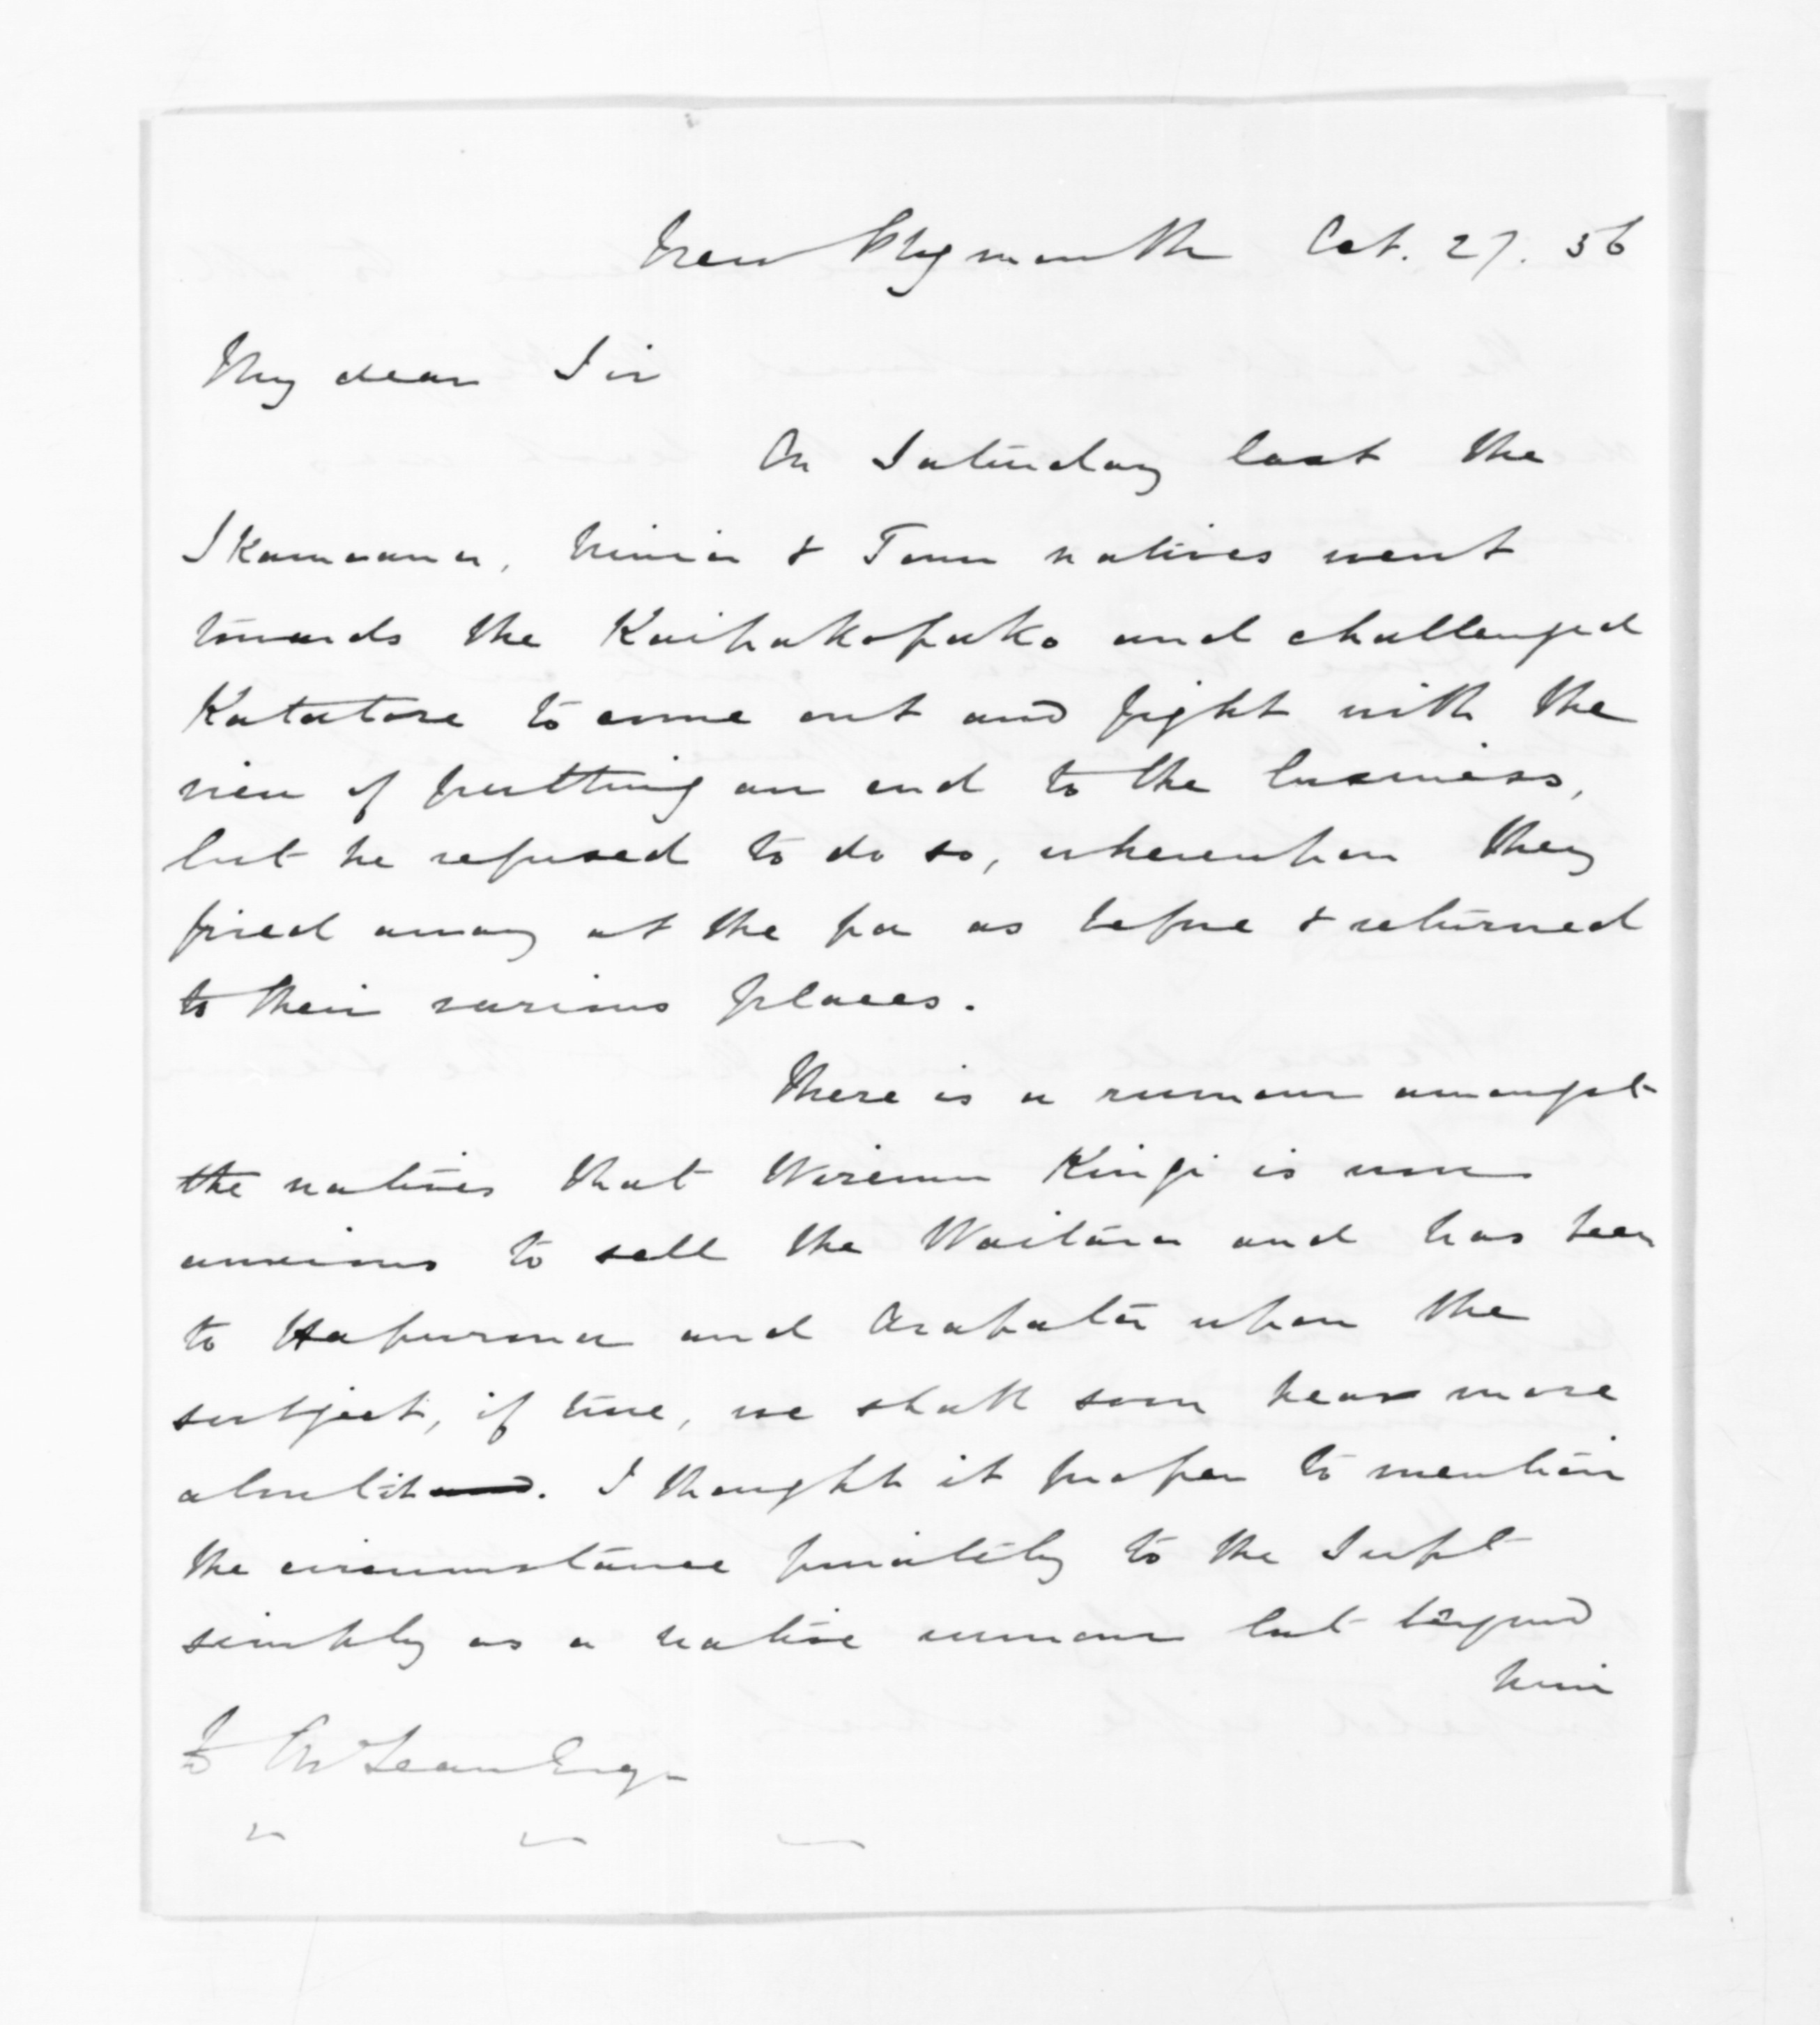 New Plymouth Oct. 27. 56
My dear Sir
On Saturday last the
Ikamoana, Ninia & Town natives went
towards the Kaipakopako and challenged
Katatore to come out and fight with the
view of putting an end to the business,
but he refused to do so, whereupon they
fired away at the pa as before & returned
to their various places.
There is a rumour amongst
the natives that Wiremu Kingi is now
anxious to sell the Waitara and has been
to Hapurona and Arapata upon the
subject, if true, we shall soon hear more
about it. I thought it proper to mention
the circumstance privately to the Supt
simply as a native rumour but beyond
him
To McLean Esqr